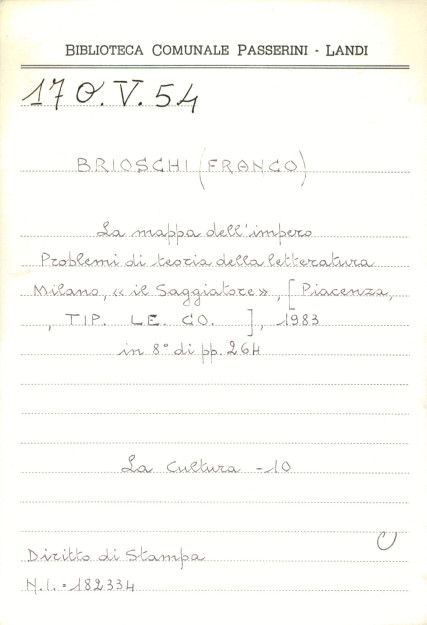 BIBLIOTECA COMUNALE PASSERINI - LANDI
17 O.V.54
BRIOSCHI (FRANCO)
La mappa dell'impero
Problemi di teoria della letteratura
Milano, «il Saggiatore», [Piacenza,
, TIP. LE. CO. ], 1983
in 8° di pp. 264
La Cultura - 10
C
Diritto di Stampa
N.I. = 182334